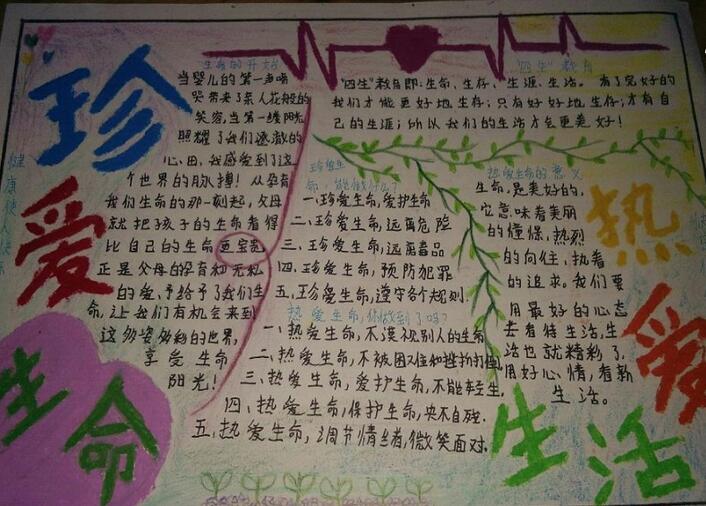 珍
爱
生命
健康使人快乐
生命的开始
当婴儿的第一声啼
哭带来了亲人花般的
笑容，当第一缕阳光
照耀了我们逐渐的
心田，我感受到了这
个世界的脉搏！从孕育
我们生命的那一刻起，父母
就把孩子的生命看得
比自己的生命更宝贵
正是父母的孕育和无私
的爱，予给予了我们生
命，让我们有机会来到
这多姿多彩的世界，
享受生命
阳光！
"四生"教育
"四生"教育即：生命、生存、生涯、生活。有了完好的
我们才能更好地生存；只有好好地生存；才有自
己的生涯；所以我们的生活才会更美好！
珍爱生
命，能做什么？
一、珍爱生命，爱护生命
二、珍爱生命，远离危险
三、珍爱生命，远离毒品
四、珍爱生命，预防犯罪
五、珍爱生命，遵守各个规则.
热爱生命，你做到了吗？
一、热爱生命，不漠视别人的生命
二、热爱生命，不被困难和挫折打倒
三、热爱生命，爱护生命，不能轻生.
四、热爱生命，保护生命，决不自残.
五、热爱生命，调节情绪，微笑面对.
热爱生命的意义
生命，是美好的，
它意味着美丽
的憧憬，热烈
的向往，执着
的追求。我们要
用最好的心态
去看待生活，生
活也就精彩了，
用好心情，看新
生活。
热
爱
生活